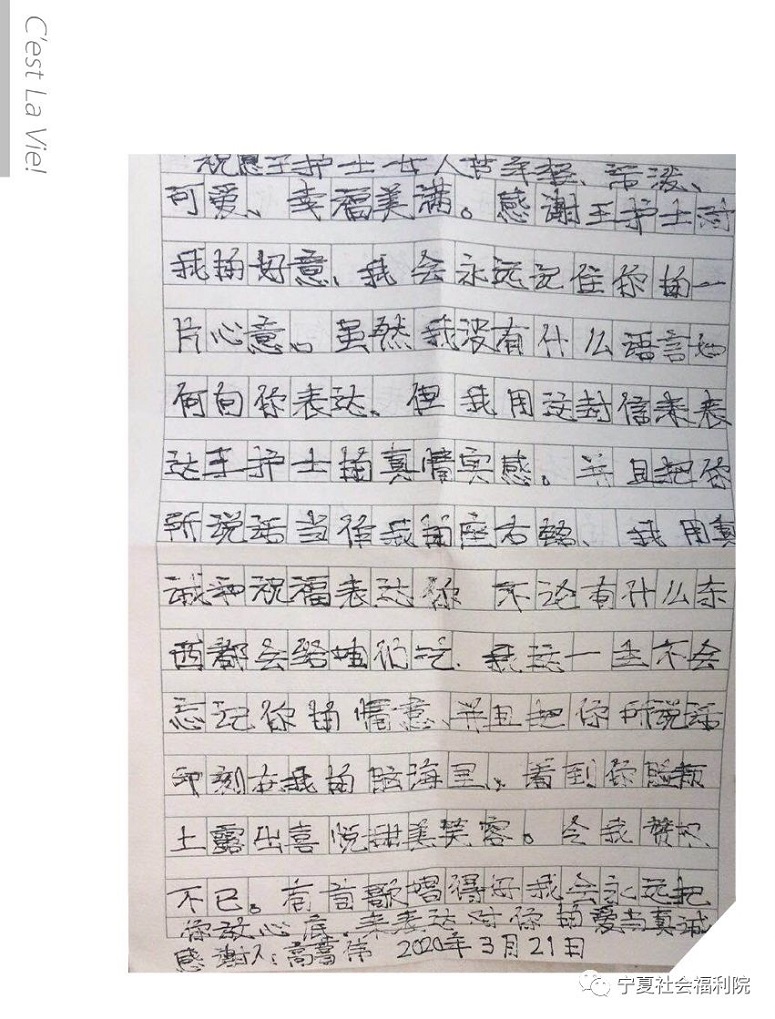 C'est La Vie!
祝愿王护士女人节年轻、活泼、
可爱、幸福美满。感谢王护士对
我的好意、我会永远记住你的一
片心意。虽然我没有什么语言如
何向你表达、但我用这封信来表
达王护士的真情实感。并且把你
所说话当作我的座右铭、我用真
诚和祝福表达你 不论有什么东
西都会给咱们吃、我这一生不会
忘记你的情意、并且把你所说话
印刻在我的脑海里。看到你脸颊
上露出喜悦甜美笑容。令我赞叹
不已。有首歌唱得好我会永远把
你放心底、来表达对你的爱与真诚
感谢人: 2020年3月21日
宁夏社会福利院